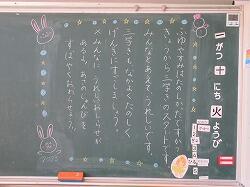 一がつ十にち火ようび
ふゆやすみはたのしかったですか？
きょうから三学きのスタートです。
みんなとあえて、うれしいです。
三学きも、なかよく、たのしく
げんきにすごしましょう。
みんなに、うれしいおしらせが
あるよ。あさのじゅんびを
すばやくおわらせよう。
2023